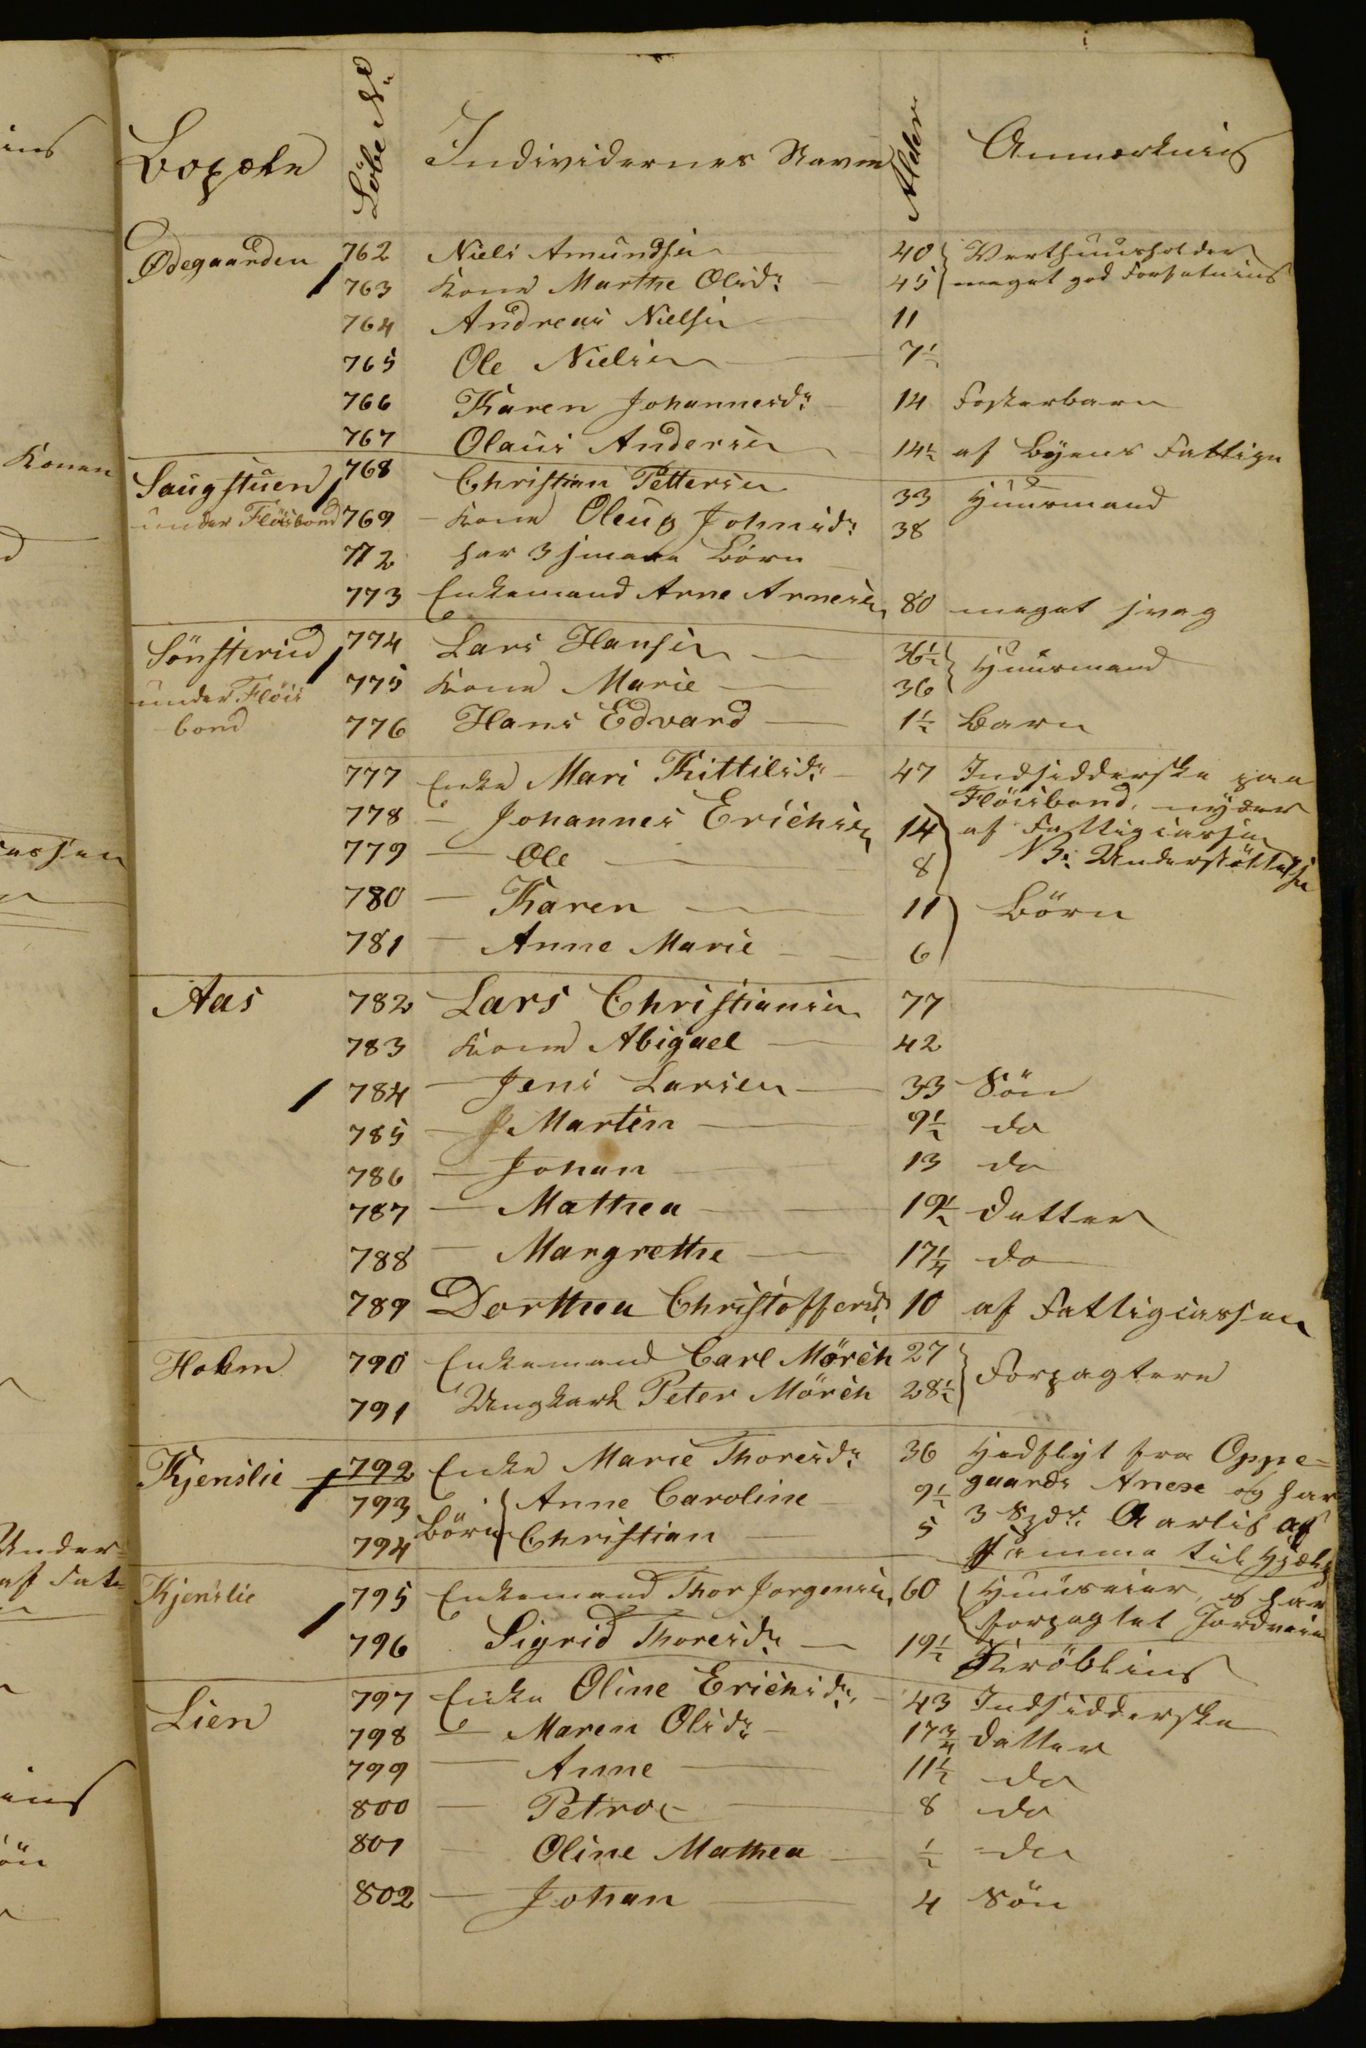 Bopæle Löbe No. Individernes Navne Alder Anmærkning
Ødegaarden 762 Niels Amundsen 40 Verthuusholder
763 Kone Marthe Olsdr. 45 meget god Forfatning
764 Andreas Nielsen 11
765 Ole Nielsen 7½
766 Karen Johannesdr. 14 Fosterbarn
767 Olaus Andersen 14½ af Byens Fattige
Saugstuen 768 Christian Pettersen 33 Huusmand
under Flöisbond 769 Kone Oleug Johnsdr. 38
772 har 3 smaae Börn
773 Enkemand Arne Arnesen 80 meget svag
Sönsterud 774 Lars Hansen 36½ Huusmand
under Flöis 775 Kone Marie 36
bond 776 Hans Edvard 1½ Barn
777 Enke Mari Kittilsdr. 47 Indsidderske paa
Flöisbond, nyder
778 — Johannes Erichsen 14 af Fattigcassen
779 — Ole 8 Understöttelse
780 — Karen 11 Börn
781 — Anne Marie 6
Aas 782 Lars Christiansen 77
783 Kone Abigael 42
784 — Jens Larsen 33 Sön
785 — Martin 9½ do
786 — Johan 13 do
787 — Mathea 19½ datter
788 — Margrethe 17¼ do
789 Dorthea Christoffersdr. 10 af Fattigcassen
Holem 790 Enkemand Carl Mörch 27 Forpagtere
791 Ungkarl Peter Mörch 28½
Kjenslie 792 Enke Marie Thoresdr. 36 Hidflyt fra Oppe=
793 Börn Anne Caroline 9½ gaards Anex og har
794 Christian 5 3 Spdr. Aarlig af
samme til Hjælp
Kjenslie 795 Enkemand Thor Jorgensen 60 Huuseier, og har
forpagtet Jordveien
796 Sigrid Thoresdr. 19½ Kröbling
Lien 797 Enke Oline Erichsdr. 43 Indsidderske
798 — Maren Olsdr. 17¾ datter
799 — Anne 11½ do
800 — Petroe 8 do
801 — Oline Mathea ½ do
802 — Johan 4 Sön